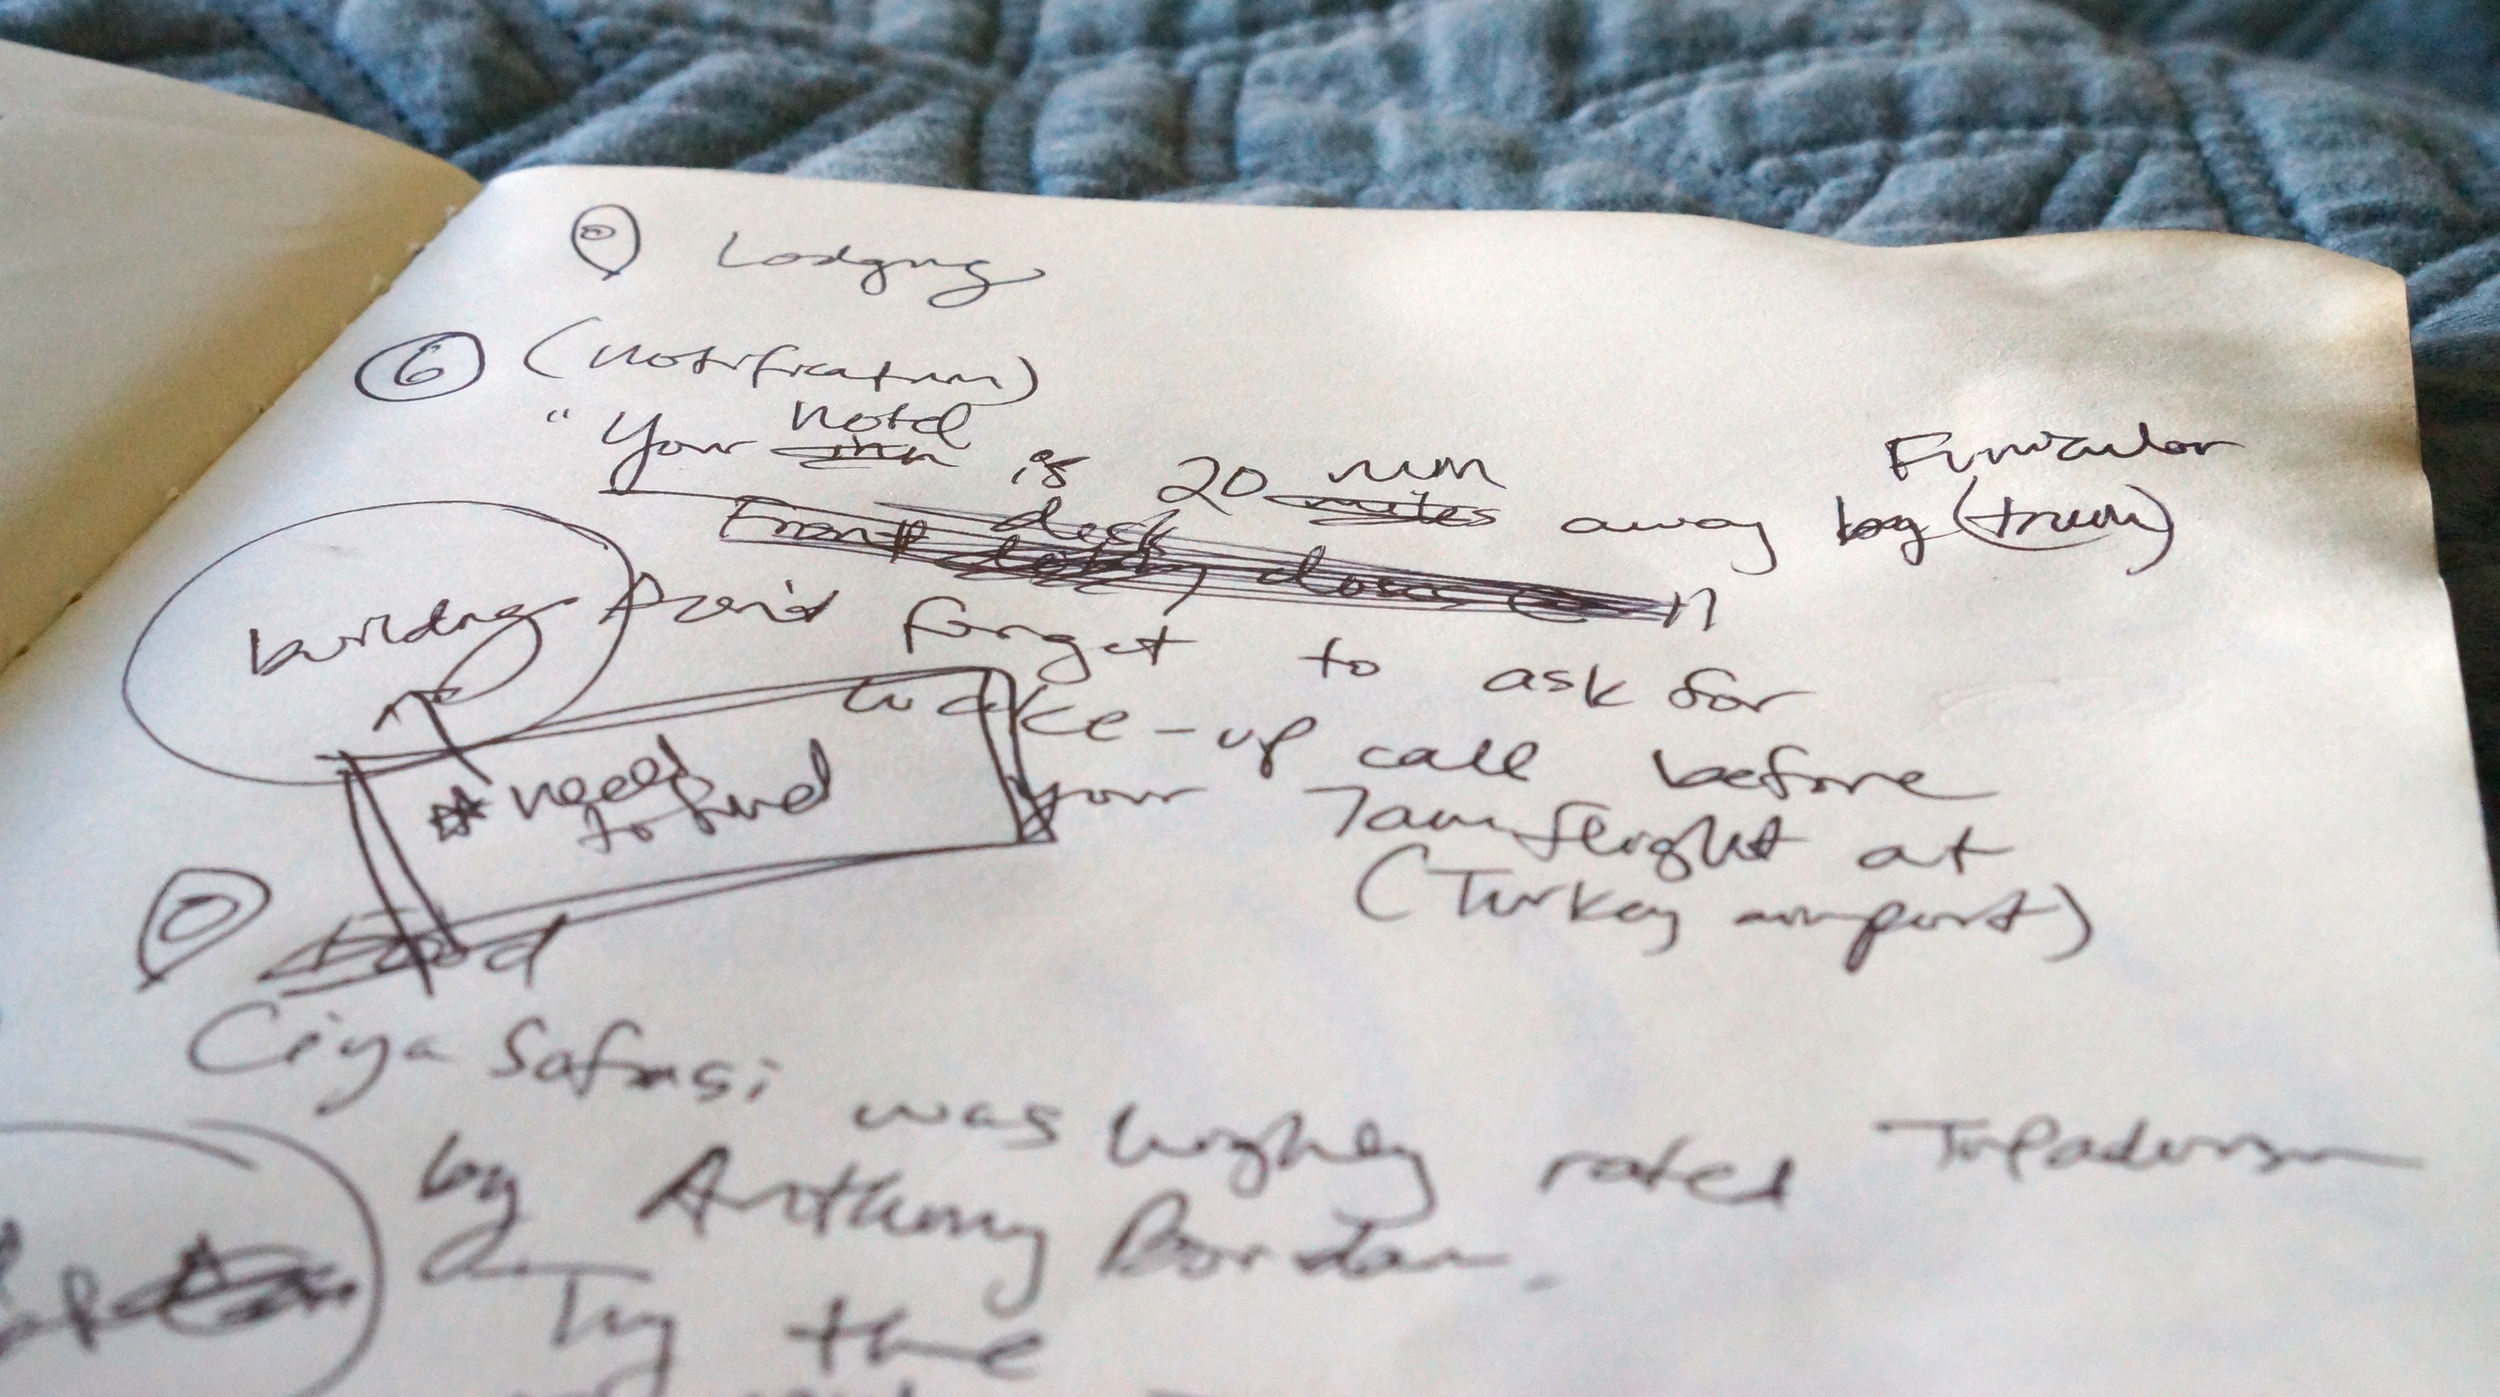 Lodging
6 (notification)
Funicular
hotel
"Your inn is 20 min
miles away by (train)
desk
Front lobby
building
Don't forget to ask for
wake-up call before
* need
to find
your 7am flight at
(Turkey airport)
food
Ciya Sofrasi
was highly rated Tripadvisor
by Anthony Bordain.
Try the